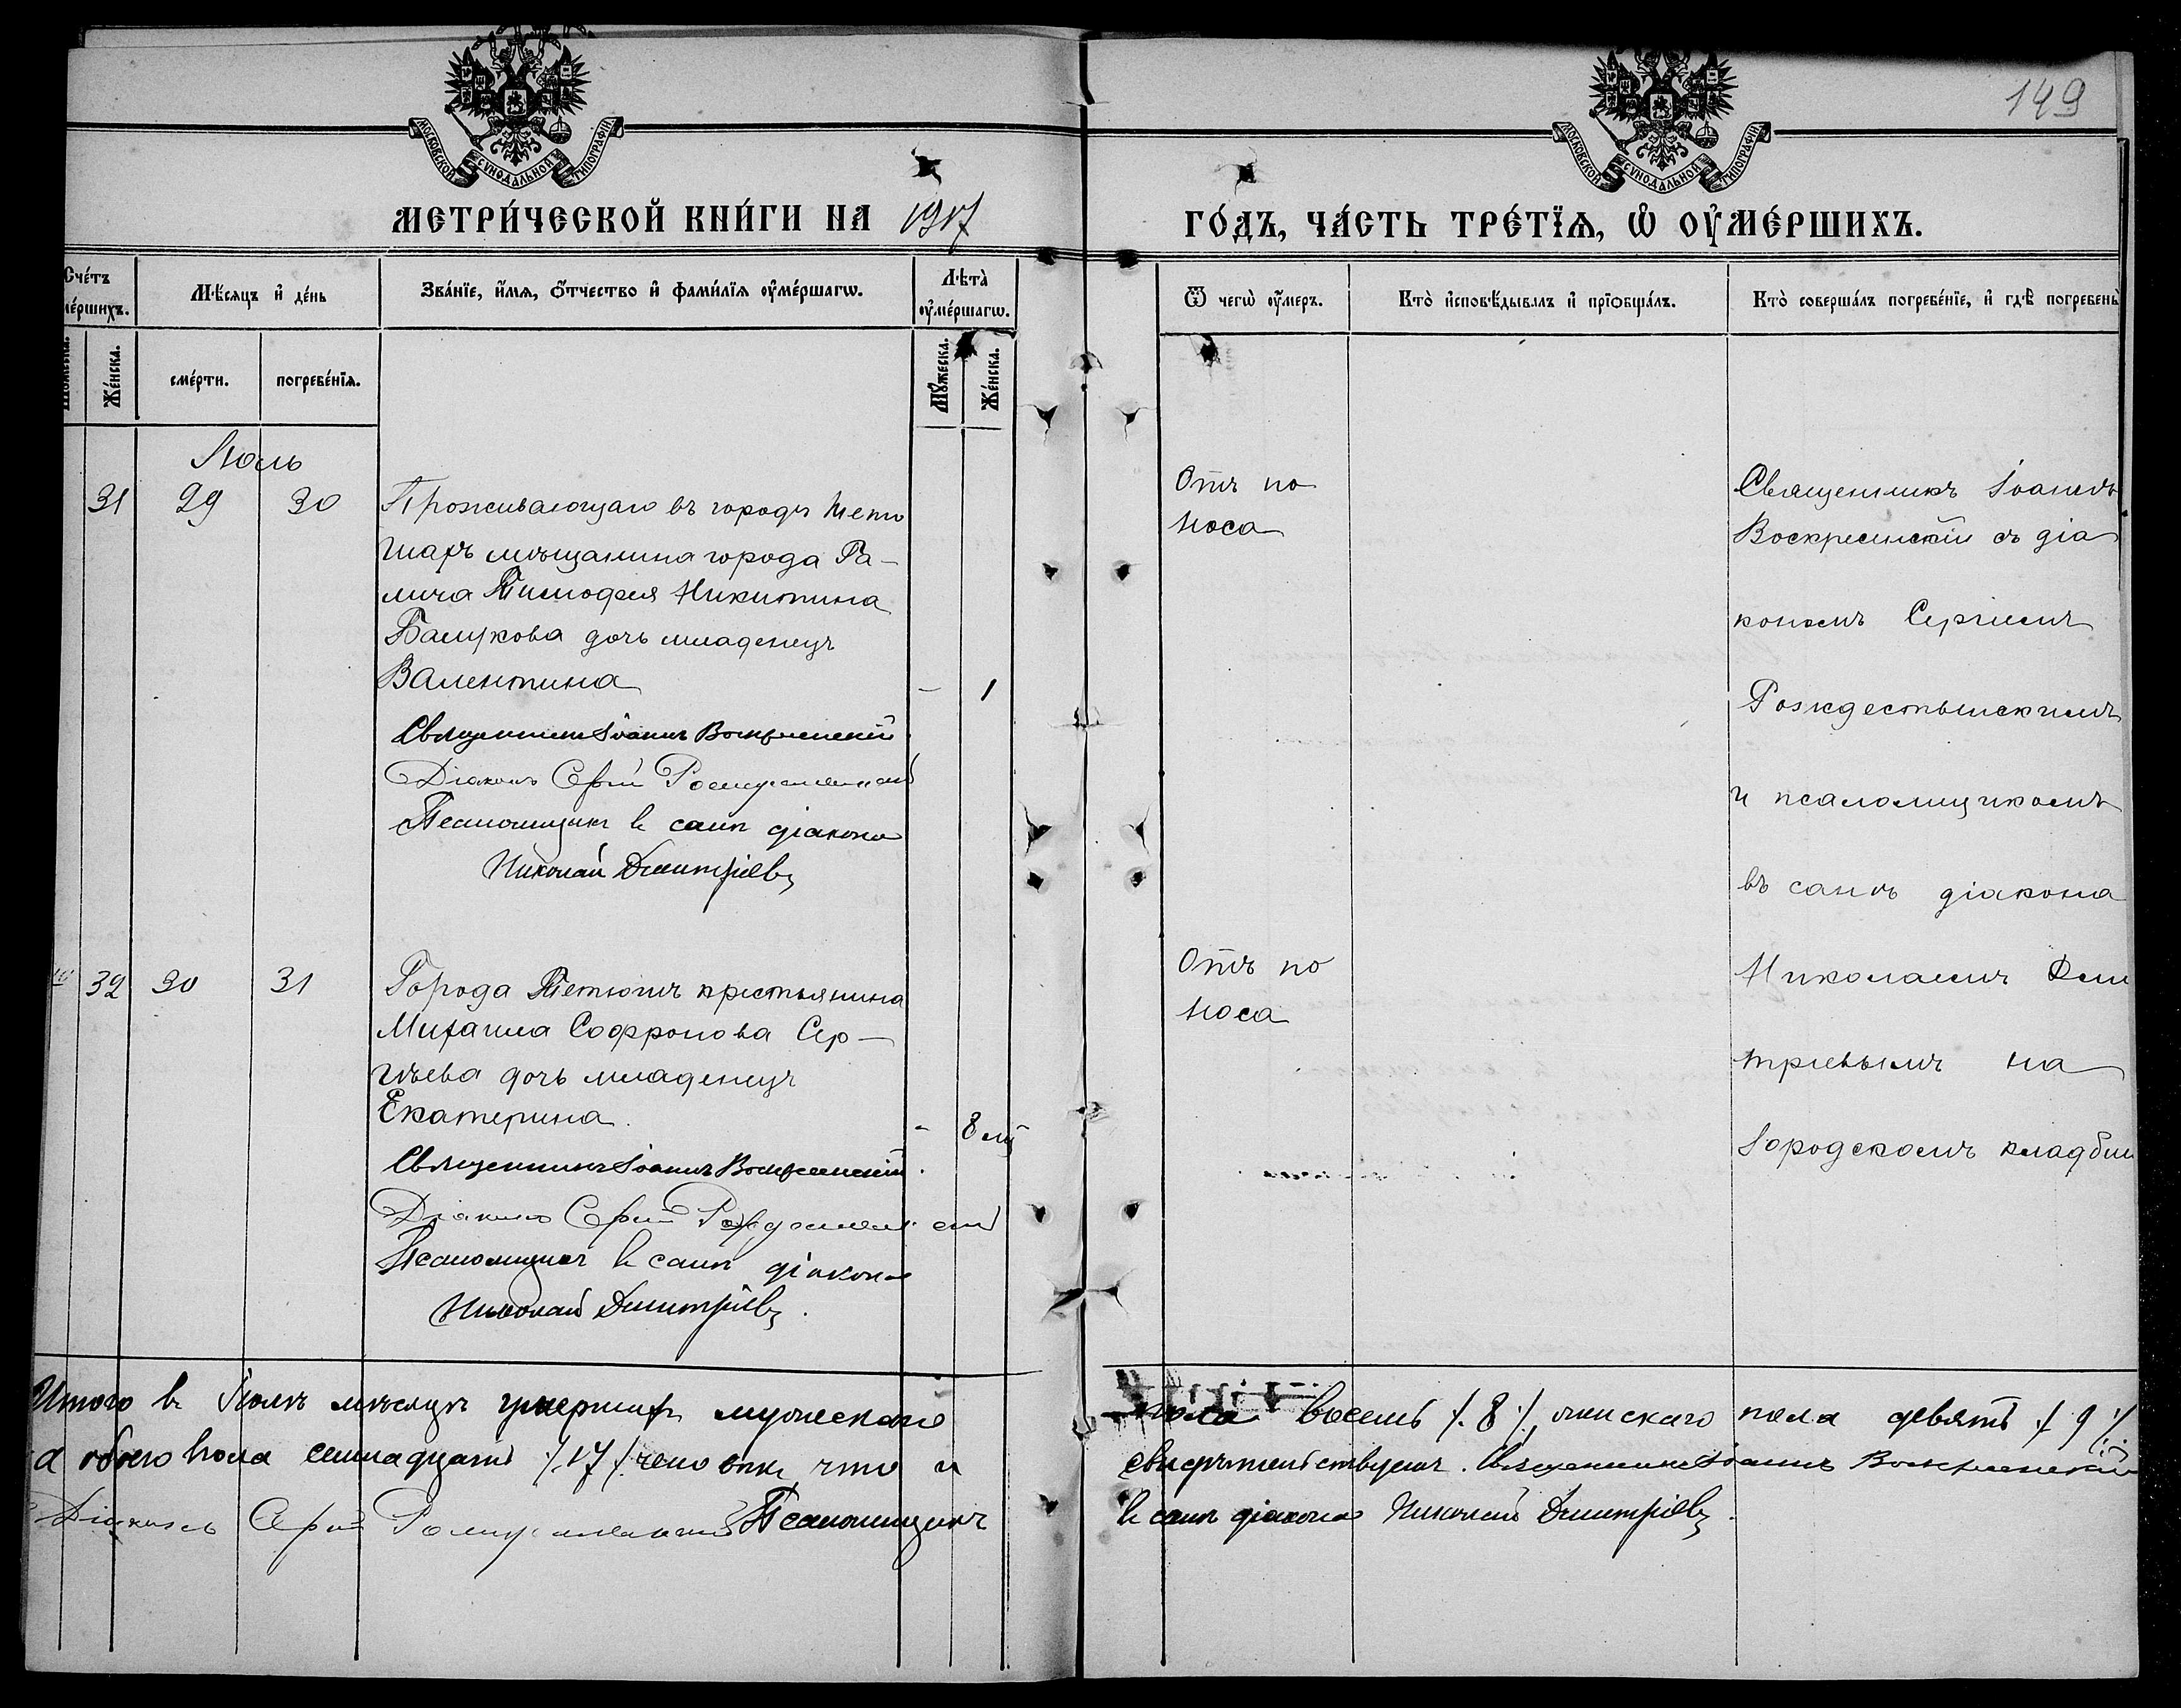 149
МОСКОВСКОЙ СУНОДАЛЬНОЙ ТИПОГРАФІИ
МОСКОВСКОЙ СУНОДАЛЬНОЙ ТИПОГРАФІИ
МЕТРИ́ЧЕСКОЙ КНИ́ГИ НА 1917 ГО́ДЪ, ЧА́СТЬ ТРЕ́ТЇѦ, Ѡ҆ ОУ҆МЕ́РШИХЪ.
Счетъ умершихъ.
Мѣсяцъ и день
Званїе, имя, ѻтчество и фамилїя оумершагѡ.
Лѣта оумершагѡ.
Ѿ чегѡ оумеръ.
Кто исповѣдывалъ и прїобщалъ.
Кто совершалъ погребенїе, и гдѣ погребены
Женска.
смерти.
погребенїя.
Мужеска.
Женска.
Іюль
31 29 30
Проживающаго въ городѣ Тетю
шахъ мѣщанина города Га-
лича Тимофея Никитина
Балукова дочь младенецъ
Валентина - 1
Священникъ Іоаннъ Воскресенскій
Діаконъ Сергій Рождественскій
Псаломщикъ въ санѣ діакона
Николай Димитріевъ
Отъ по
носа
Священникъ Іоаннъ
Воскресенскій съ діа
кономъ Сергіемъ
Рождественскимъ
и псаломщикомъ
въ санѣ діакона
Николаемъ Дми
тріевымъ на
городскомъ кладби
32 30 31
Города Тетюшъ крестьянина
Михаила Софронова Сер-
гѣева дочь младенецъ
Екатерина. - 8 мц
Священникъ Іоаннъ Воскресенскій.
Діаконъ Сергій Рождественскій
Псаломщикъ въ санѣ діакона
Николай Димитріевъ.
Отъ по
носа
Итого въ Іюлѣ мѣсяцѣ умершихъ мужескаго пола восемь /.8./, женскаго пола девять /.9./.
а обоего пола семнадцать /.17./ человѣкъ, что и свидѣтельствуемъ. Священникъ Іоаннъ Воскресенскій
Діаконъ Сергій Рождественскій Псаломщикъ въ санѣ діакона Николай Димитріевъ.